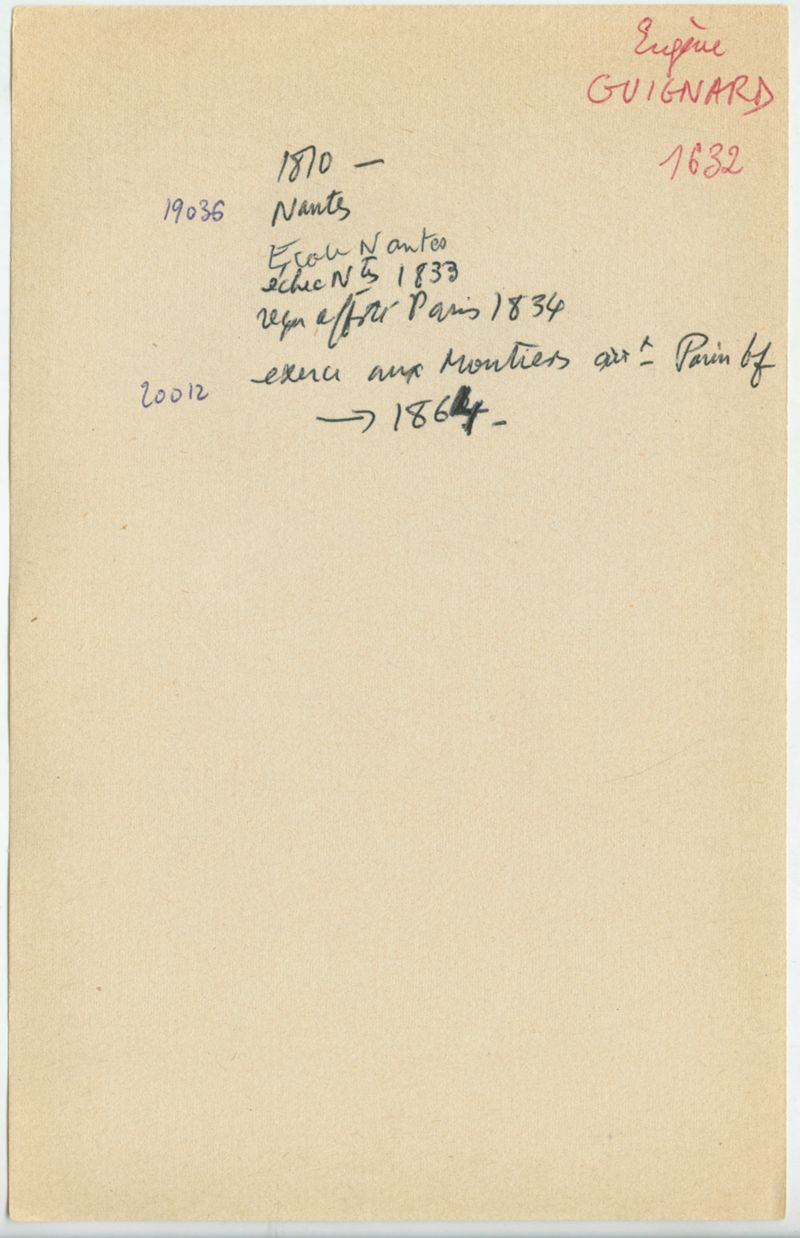 Eugène
GUIGNARD
1632
1810 —
19036 Nantes
École Nantes
échec Ntes 1833
reçu Paris 1834
20012 exerce aux Moutiers arrt Paimbf
→ 1864 -